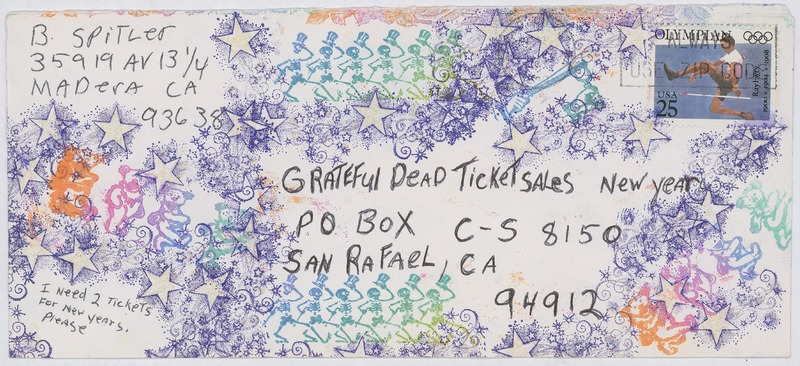 B. Spitler
35919 AV 13 1/4
MADerA CA
93638
OLYMPIAN
ALWAYS
USE ZIP CODE
USA
25
Ray Ewry
GRATEFul DEAD TICKET SALES New year
PO BOX C-S 8150
SAN RAFAEL, CA
94912
I Need 2 Tickets
For New Years,
Please